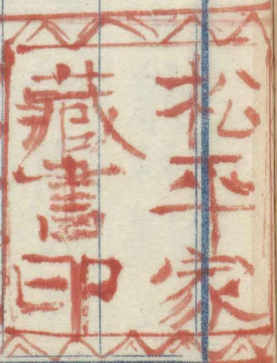 松平家
藏書印